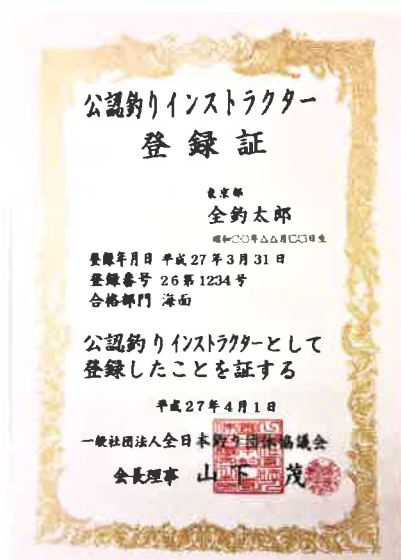 公認釣りインストラクター
登録証
東京都
全釣太郎
昭和○○年△△月□□日生
登録年月日 平成27年3月31日
登録番号 26第1234号
合格部門 海面
公認釣りインストラクターとして
登録したことを証する
平成27年4月1日
一般社団法人全日本釣り団体協議会
会長理事 山下 茂